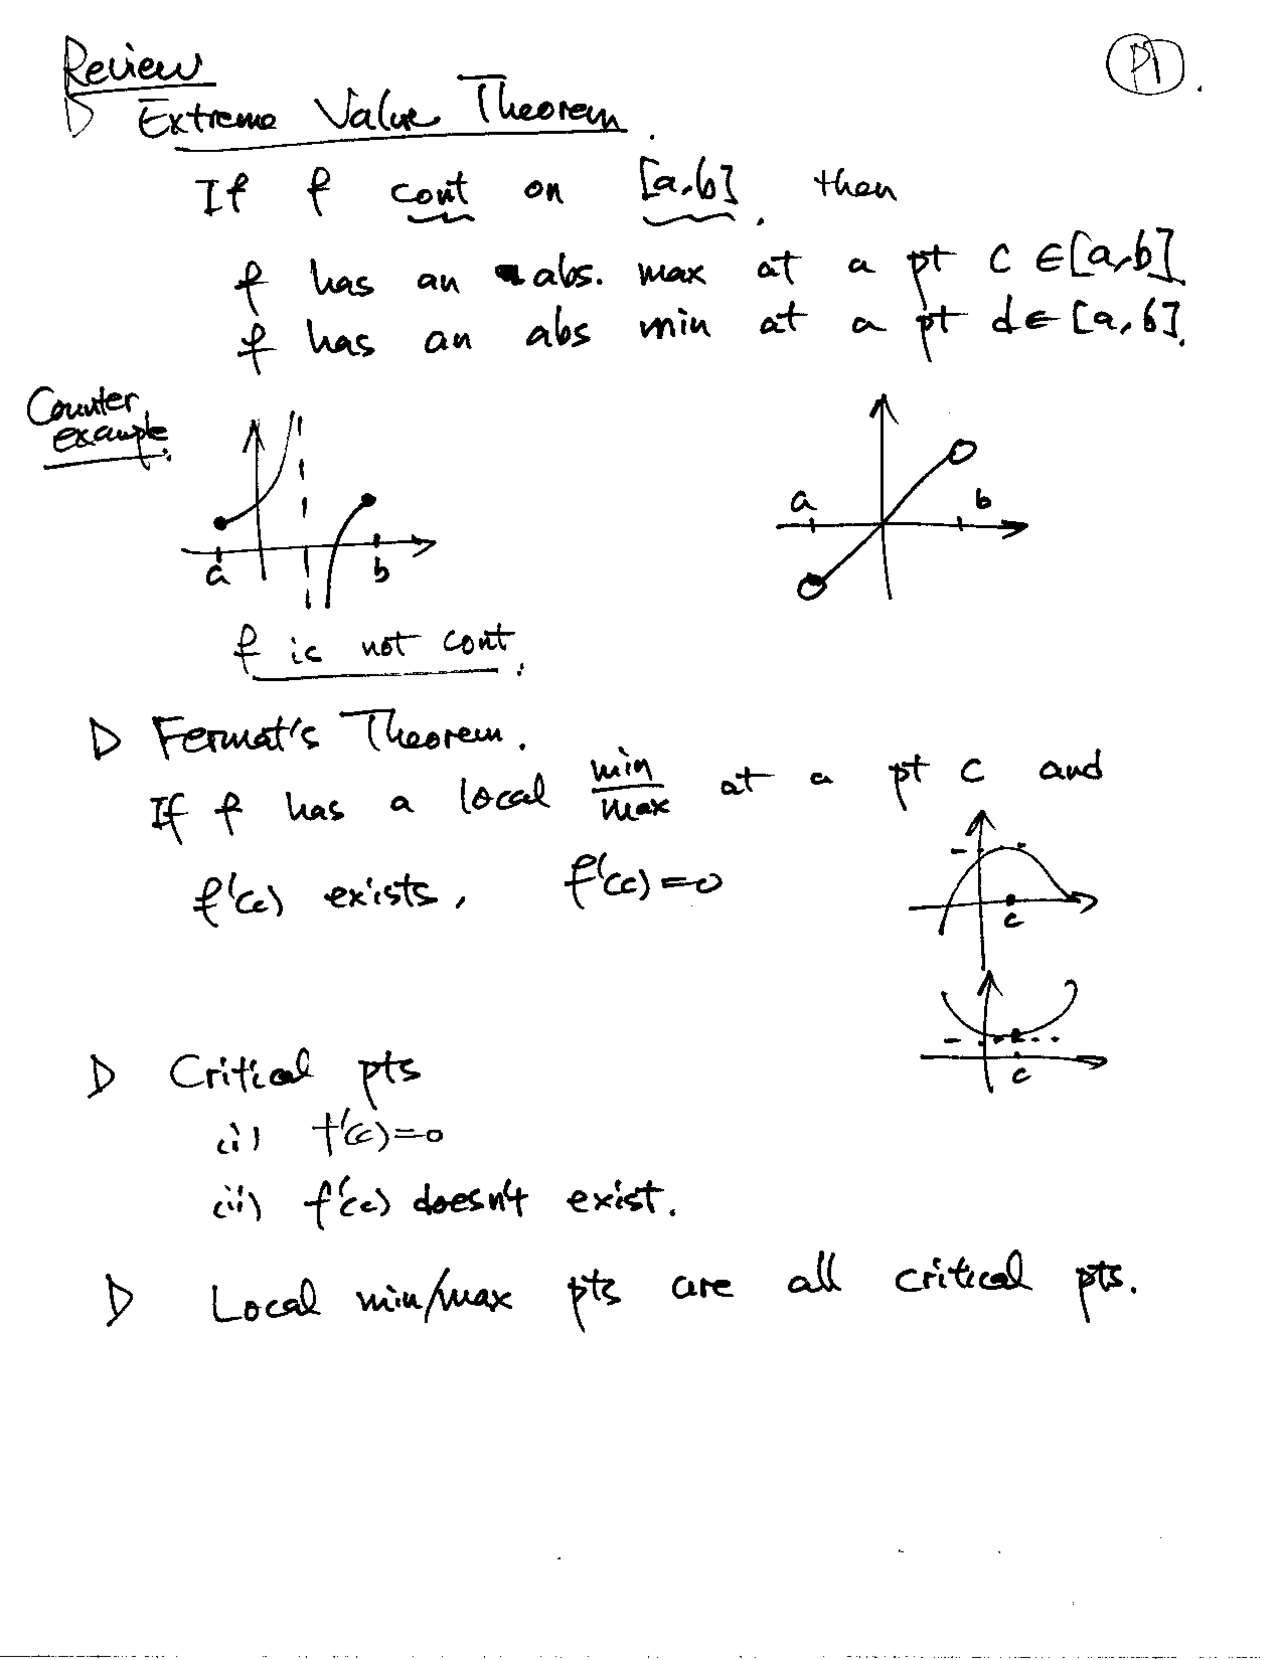 Review
P1.
▷ Extreme Value Theorem.
If f cont on [a,b], then
f has an abs. max at a pt c ∈ [a,b].
f has an abs min at a pt d ∈ [a,b].
Counter
example.
a b
a b
f is not cont.
▷ Fermat's Theorem.
If f has a local min/max at a pt c and
f'(c) exists, f'(c)=0
c
c
▷ Critical pts
(i) f'(c)=0
(ii) f'(c) doesn't exist.
▷ Local min/max pts are all critical pts.